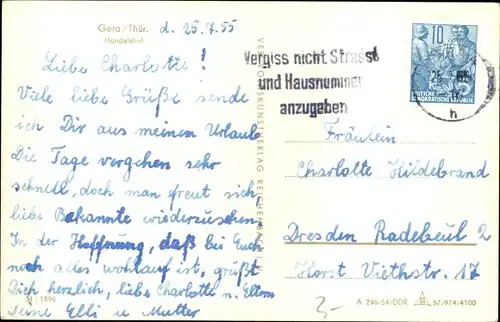 Gera/Thür.
Handelshof
d. 25.7.55
Liebe Charlotte!
Viele liebe Grüße sende
ich Dir aus meinem Urlaub.
Die Tage vergehen sehr
schnell, doch man freut sich
liebe Bekannte wiederzusehen.
In der Hoffnung, daß bei Euch
noch alles wohlauf ist, grüßt
Dich herzlich, liebe Charlotte u. Eltern
Deine Elli u. Mutter
1896
VERLAG REICHENBACH
Vergiss nicht Strasse
und Hausnummer
anzugeben
10
DEUTSCHE
DEMOKRATISCHE REPUBLIK
h
Fräulein
Charlotte Hildebrand
Dresden Radebeul 2
Horst Viethstr. 17
3,-
A 246/54/DDR
57/974/4100